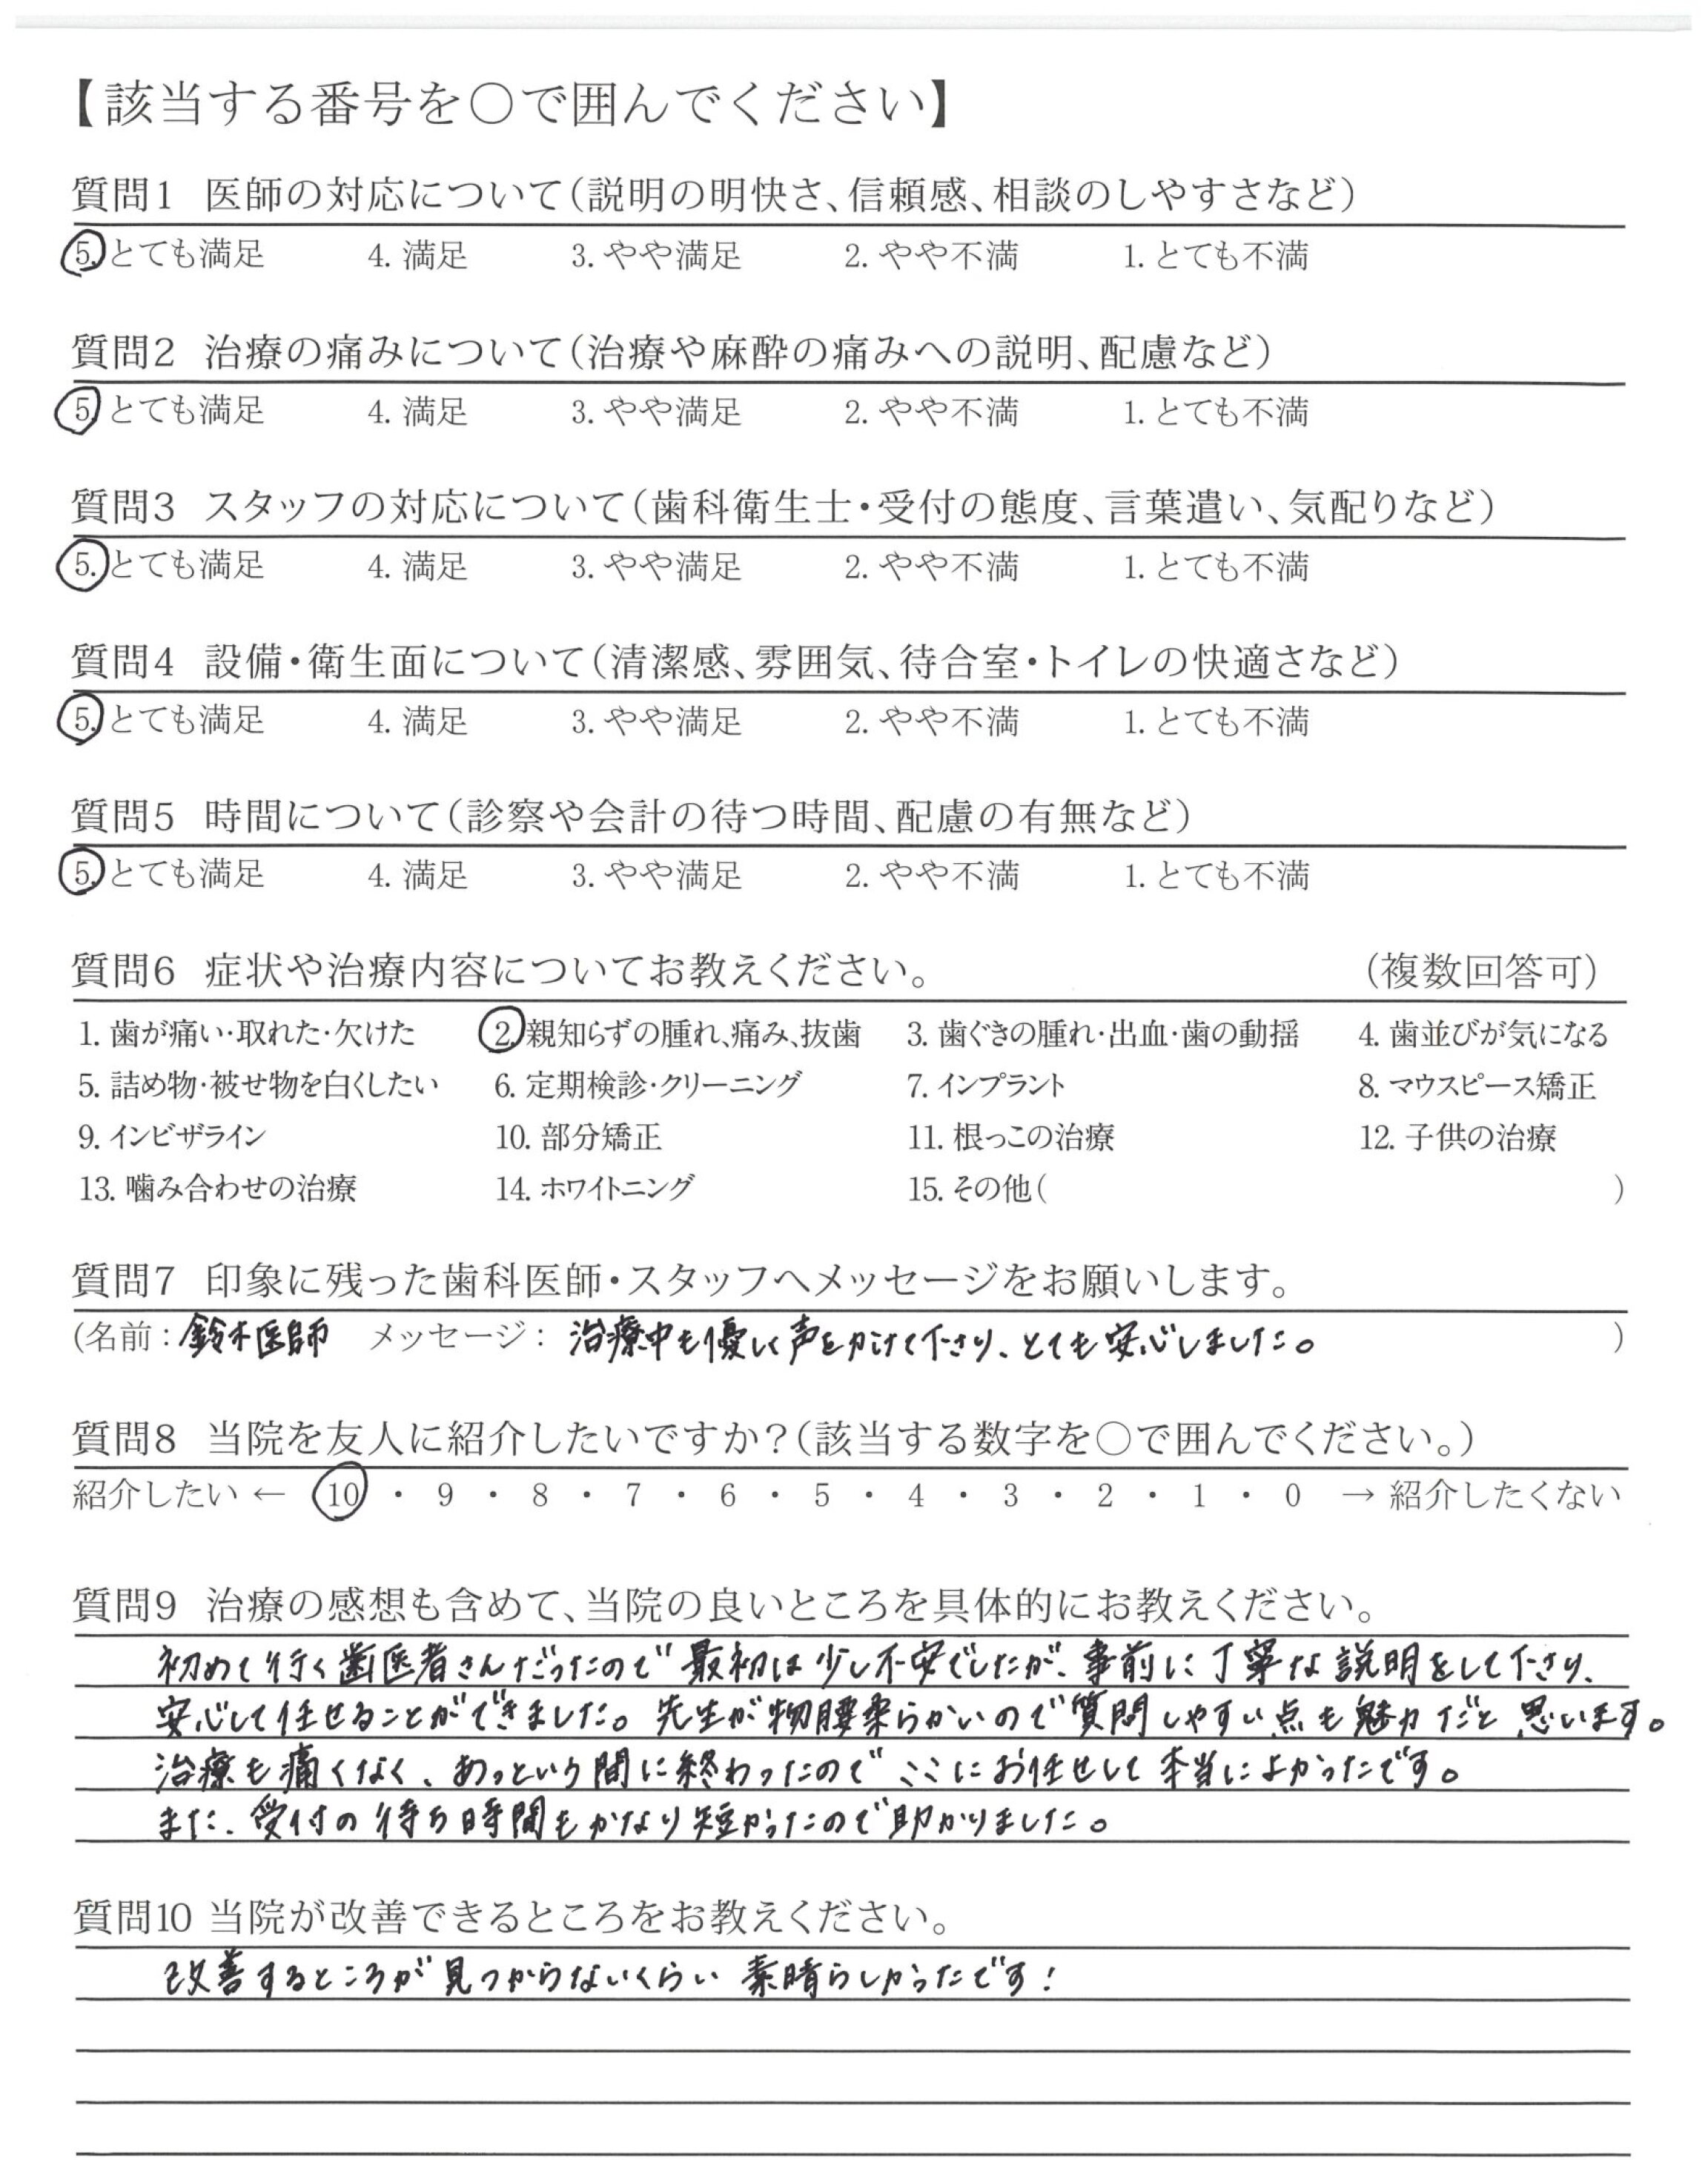 【該当する番号を〇で囲んでください】
質問1 医師の対応について(説明の明快さ、信頼感、相談のしやすさなど)
5.とても満足 4. 満足 3. やや満足 2. やや不満 1. とても不満
質問2 治療の痛みについて(治療や麻酔の痛みへの説明、配慮など)
5.とても満足 4. 満足 3. やや満足 2. やや不満 1. とても不満
質問3 スタッフの対応について(歯科衛生士・受付の態度、言葉遣い、気配りなど)
5.とても満足 4. 満足 3. やや満足 2. やや不満 1. とても不満
質問4 設備・衛生面について(清潔感、雰囲気、待合室・トイレの快適さなど)
5.とても満足 4. 満足 3. やや満足 2. やや不満 1. とても不満
質問5 時間について(診察や会計の待つ時間、配慮の有無など)
5.とても満足 4. 満足 3. やや満足 2. やや不満 1. とても不満
質問6 症状や治療内容についてお教えください。 (複数回答可)
1. 歯が痛い・取れた・欠けた 2.親知らずの腫れ、痛み、抜歯 3. 歯ぐきの腫れ・出血・歯の動揺 4. 歯並びが気になる
5. 詰め物・被せ物を白くしたい 6. 定期検診・クリーニング 7. インプラント 8. マウスピース矯正
9. インビザライン 10. 部分矯正 11. 根っこの治療 12. 子供の治療
13. 噛み合わせの治療 14. ホワイトニング 15. その他( )
質問7 印象に残った歯科医師・スタッフへメッセージをお願いします。
(名前:鈴木医師 メッセージ: 治療中も優しく声をかけて下さり、とても安心しました。 )
質問8 当院を友人に紹介したいですか?(該当する数字を〇で囲んでください。)
紹介したい ← 10 ・ 9 ・ 8 ・ 7 ・ 6 ・ 5 ・ 4 ・ 3 ・ 2 ・ 1 ・ 0 → 紹介したくない
質問9 治療の感想も含めて、当院の良いところを具体的にお教えください。
初めて行く歯医者さんだったので最初は少し不安でしたが、事前に丁寧な説明をして下さり、
安心して任せることができました。先生が物腰柔らかいので質問しやすい点も魅力だと思います。
治療も痛くなく、あっという間に終わったのでここにお任せして本当によかったです。
また、受付の待ち時間もかなり短かったので助かりました。
質問10 当院が改善できるところをお教えください。
改善するところが見つからないくらい素晴らしかったです!